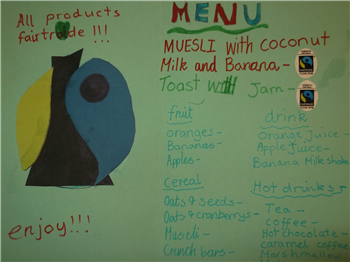 All products
fairtrade !!!
enjoy!!!
MENU
MUESLI with coconut
Milk and Banana-
Toast with Jam-
fruit
oranges-
Bananas-
Apples-
Cereal
Oats & seeds-
Oats & cranberrys-
Muesli-
Crunch bars-
drink
Orange Juice-
Apple Juice-
Banana Milkshake
Hot drinks-
Tea-
coffee-
Hot chocolate-
caramel coffee
Marshmallow